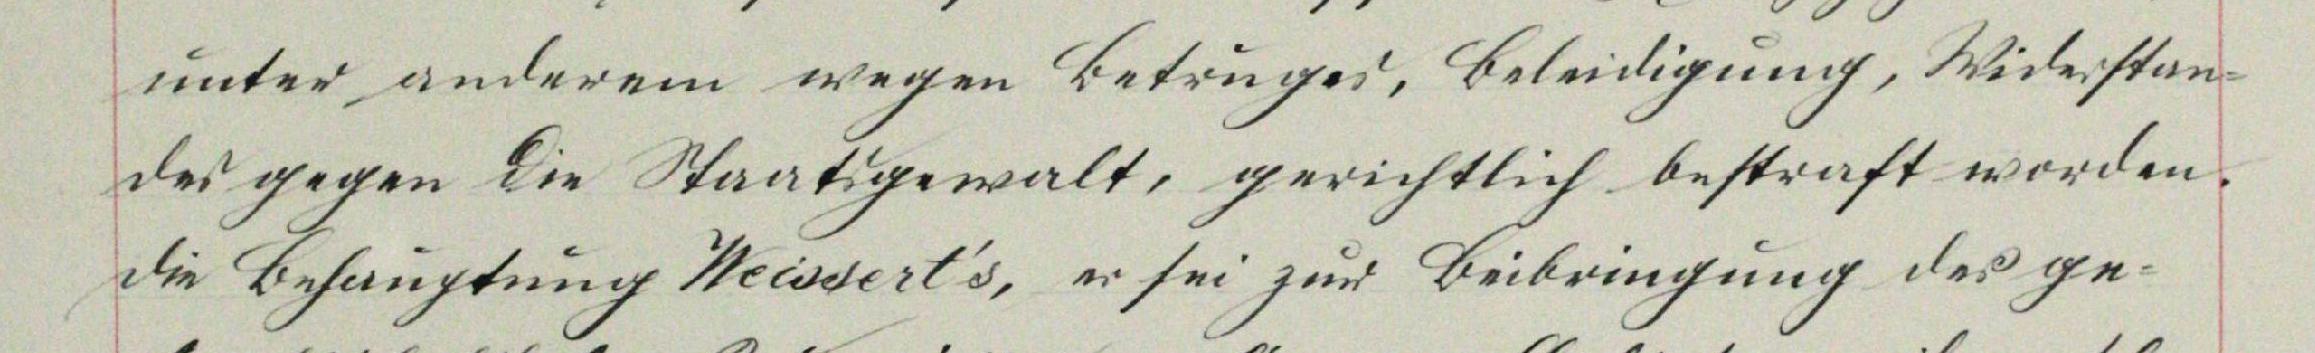 unter anderem wegen Betruges, Beleidigung, Widerstan-
des gegen die Staatsgewalt, gerichtlich bestraft worden.
Die Behauptung Weissert's, er sei zur Beibringung des ge-